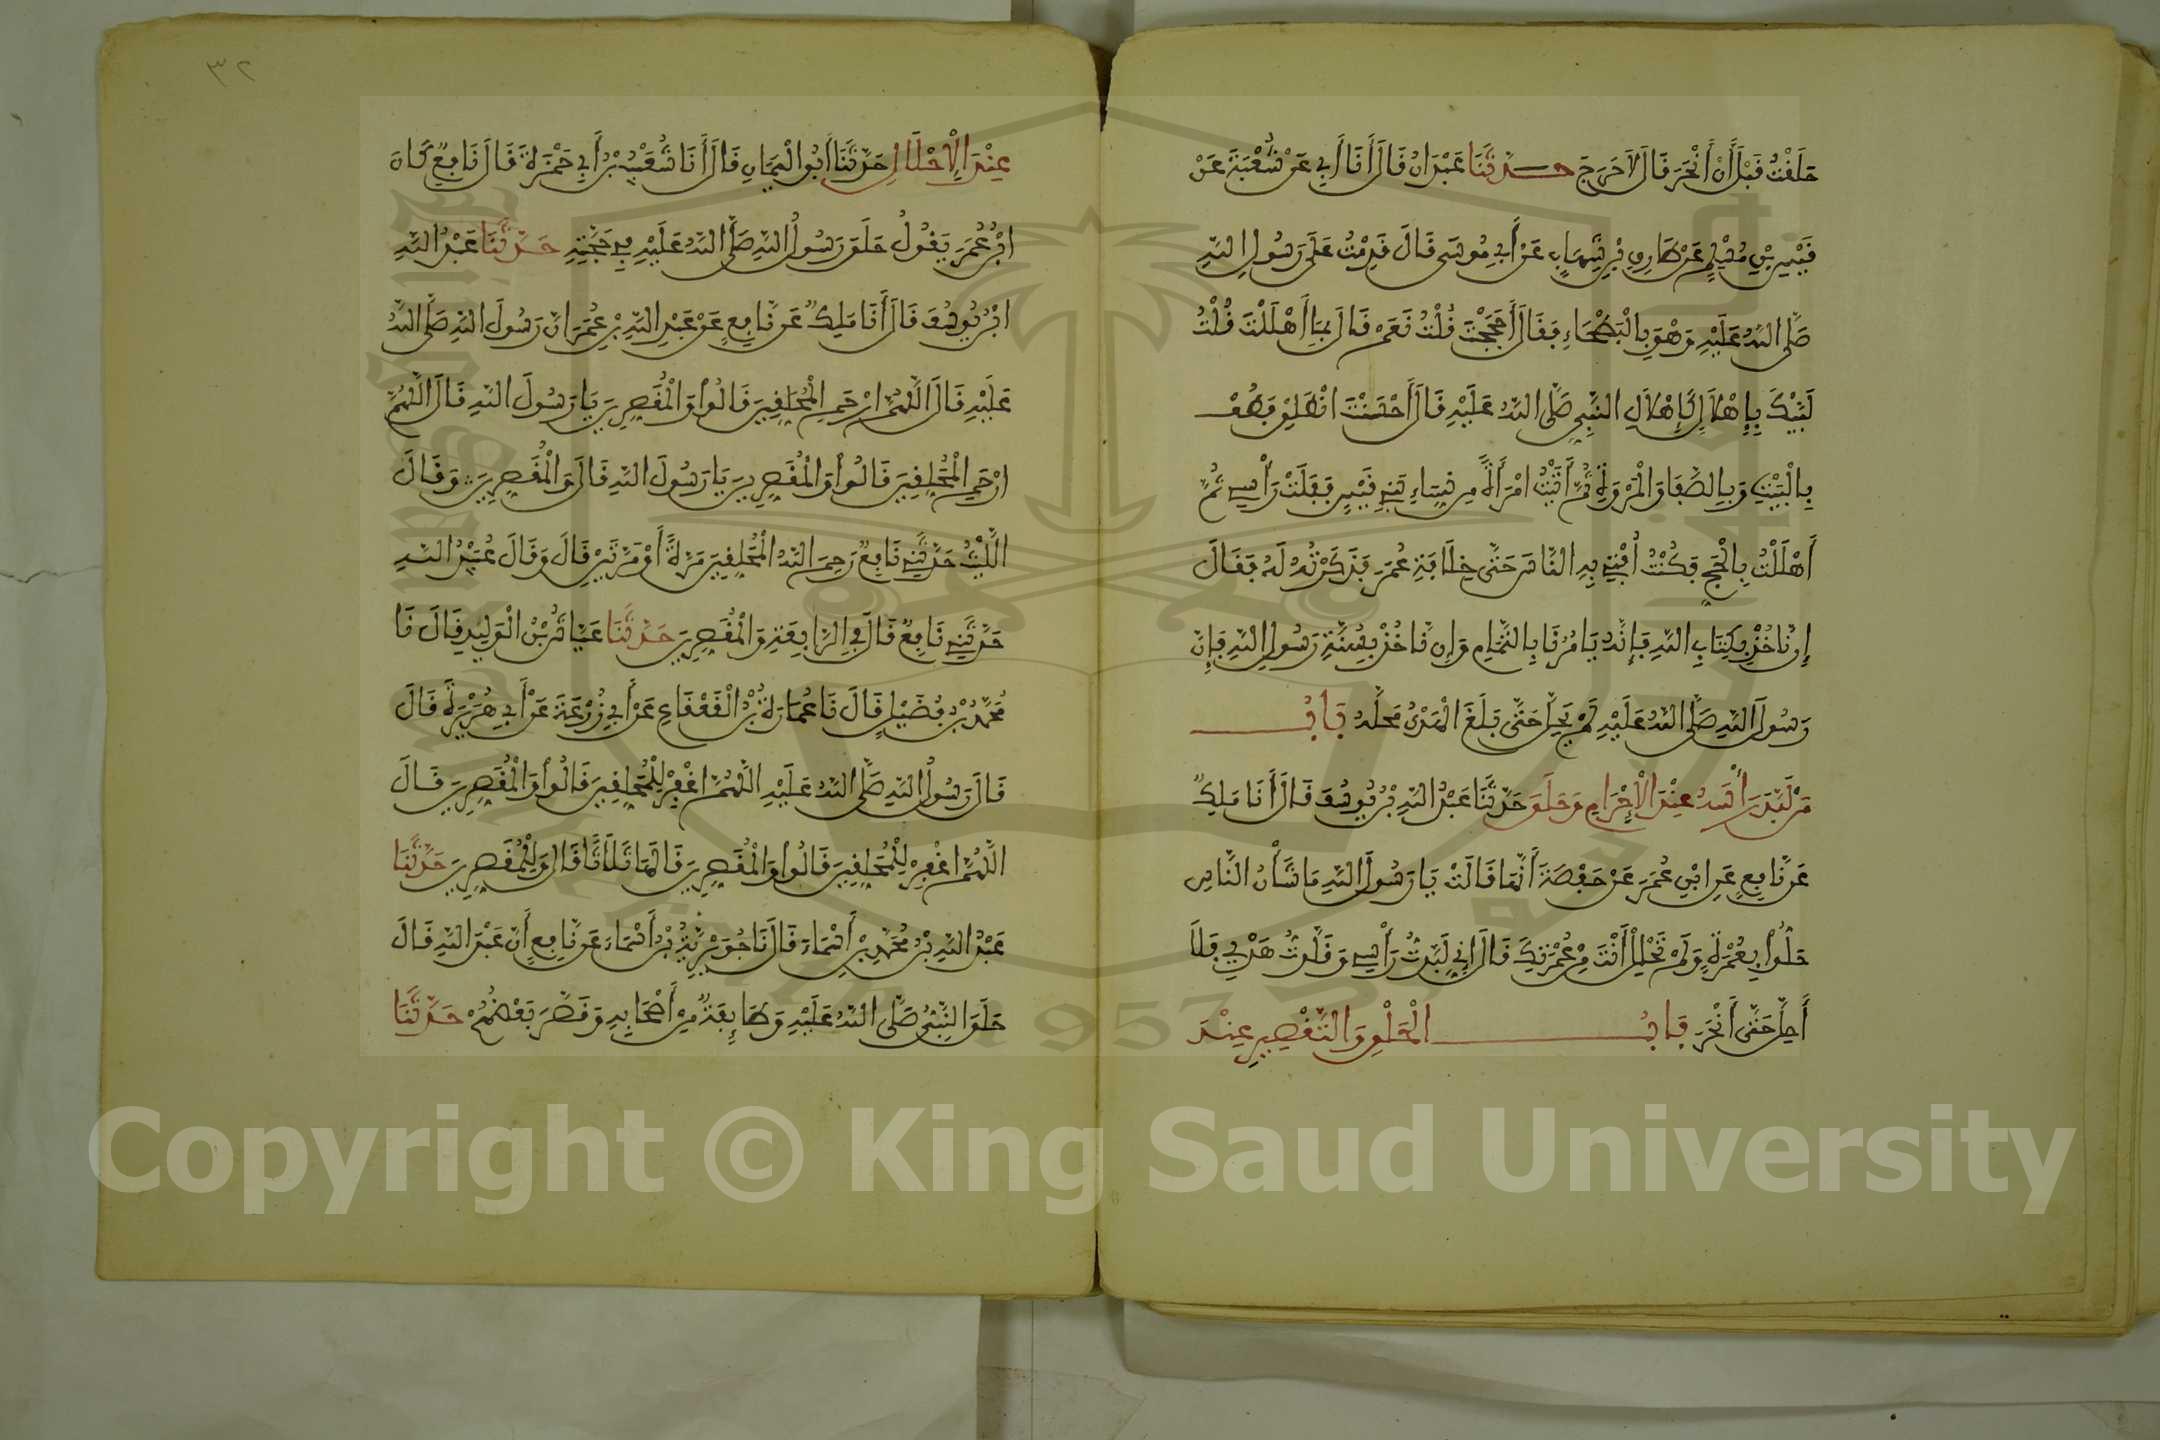 حَلَفْتُ قَبْلَ أَنْ أَنْحَرَ قَالَ لَا حَرَجَ حدثَنَا عَبْدَانُ قَالَ أَنَا أَبِي عَنْ شُعْبَةَ عَنْ
قَيْسِ بْنِ مُسْلِمٍ عَنْ طَارِقِ بْنِ شِهَابٍ عَنْ أَبِي مُوسَى قَالَ قَدِمْتُ عَلَى رَسُولِ اللهِ
صَلَّى اللهُ عَلَيْهِ وَهُوَ بِالْبَطْحَاءِ فَقَالَ أَحَجَجْتَ قُلْتُ نَعَمْ قَالَ بِمَا أَهْلَلْتَ قُلْتُ
لَبَّيْكَ بِإِهْلَالٍ كَإِهْلَالِ النَّبِيِّ صَلَّى اللهُ عَلَيْهِ قَالَ أَحْسَنْتَ انْطَلِقْ فَطُفْ
بِالْبَيْتِ وَبِالصَّفَا وَالْمَرْوَةِ ثُمَّ أَتَيْتُ امْرَأَةً مِنْ نِسَاءِ بَنِي قَيْسٍ فَفَلَتْ رَأْسِي ثُمَّ
أَهْلَلْتُ بِالْحَجِّ فَكُنْتُ أُفْتِي بِهِ النَّاسَ حَتَّى خِلَافَةِ عُمَرَ فَذَكَرْتُهُ لَهُ فَقَالَ
إِنْ نَاخُذْ بِكِتَابِ اللهِ فَإِنَّهُ يَامُرُنَا بِالتَّمَامِ وَإِنْ نَاخُذْ بِسُنَّةِ رَسُولِ اللهِ فَإِنَّ
رَسُولَ اللهِ صَلَّى اللهُ عَلَيْهِ لَمْ يَحِلَّ حَتَّى بَلَغَ الْهَدْيُ مَحِلَّهُ بَابُ
مَنْ لَبَّدَ رَأْسَهُ عِنْدَ الْإِحْرَامِ وَحَلَقَ حَدَّثَنَا عَبْدُ اللهِ بْنُ يُوسُفَ قَالَ أَنَا مَلِكٌ
عَنْ نَافِعٍ عَنِ ابْنِ عُمَرَ عَنْ حَفْصَةَ أَنَّهَا قَالَتْ يَا رَسُولَ اللهِ مَا شَأْنُ النَّاسِ
حَلُّوا بِعُمْرَةٍ وَلَمْ تَحْلِلْ أَنْتَ مِنْ عُمْرَتِكَ قَالَ إِنِّي لَبَّدْتُ رَأْسِي وَقَلَّدْتُ هَدْيِي فَلَا
أَحِلُّ حَتَّى أَنْحَرَ بَابُ الْحَلْقِ وَالتَّقْصِيرِ عِنْدَ
٣٢
عِنْدَ الْإِحْلَالِ حَدَّثَنَا أَبُو الْيَمَانِ قَالَ أَنَا شُعَيْبُ بْنُ أَبِي حَمْزَةَ قَالَ نَافِعٌ كَانَ
ابْنُ عُمَرَ يَقُولُ حَلَقَ رَسُولُ اللهِ صَلَّى اللهُ عَلَيْهِ فِي حَجَّتِهِ حَدَّثَنَا عَبْدُ اللهِ
ابْنُ يُوسُفَ قَالَ أَنَا مَلِكٌ عَنْ نَافِعٍ عَنْ عَبْدِ اللهِ بْنِ عُمَرَ انَّ رَسُولَ اللهِ صَلَّى اللهُ
عَلَيْهِ قَالَ اللَّهُمَّ ارْحَمِ الْمُحَلِّقِينَ قَالُوا وَالْمُقَصِّرِينَ يَا رَسُولَ اللهِ قَالَ اللَّهُمَّ
ارْحَمِ الْمُحَلِّقِينَ قَالُوا وَالْمُقَصِّرِينَ يَا رَسُولَ اللهِ قَالَ وَالْمُقَصِّرِينَ وَقَالَ
اللَّيْثُ حَدَّثَنِي نَافِعٌ رَحِمَ اللهُ الْمُحَلِّقِينَ مَرَّةً أَوْ مَرَّتَيْنِ قَالَ وَقَالَ عُبَيْدُ اللهِ
حَدَّثَنِي نَافِعٌ قَالَ فِي الرَّابِعَةِ وَالْمُقَصِّرِينَ حَدَّثَنَا عَيَّاشُ بْنُ الْوَلِيدِ قَالَ نَا
مُحَمَّدُ بْنُ فُضَيْلٍ قَالَ نَا عُمَارَةُ بْنُ الْقَعْقَاعِ عَنْ أَبِي زُرْعَةَ عَنْ أَبِي هُرَيْرَةَ قَالَ
قَالَ رَسُولُ اللهِ صَلَّى اللهُ عَلَيْهِ اللَّهُمَّ اغْفِرْ لِلْمُحَلِّقِينَ قَالُوا وَالْمُقَصِّرِينَ قَالَ
اللَّهُمَّ اغْفِرْ لِلْمُحَلِّقِينَ قَالُوا وَالْمُقَصِّرِينَ قَالَهَا ثَلَاثًا قَالَ وَلِلْمُقَصِّرِينَ حَدَّثَنَا
عَبْدُ اللهِ بْنُ مُحَمَّدِ بْنِ أَسْمَاءَ قَالَ نَا جُوَيْرِيَةُ بْنُ أَسْمَاءَ عَنْ نَافِعٍ أَنَّ عَبْدَ اللهِ قَالَ
حَلَقَ النَّبِيُّ صَلَّى اللهُ عَلَيْهِ وَطَائِفَةٌ مِنْ أَصْحَابِهِ وَقَصَّرَ بَعْضُهُمْ حَدَّثَنَا
Copyright © King Saud University
1957